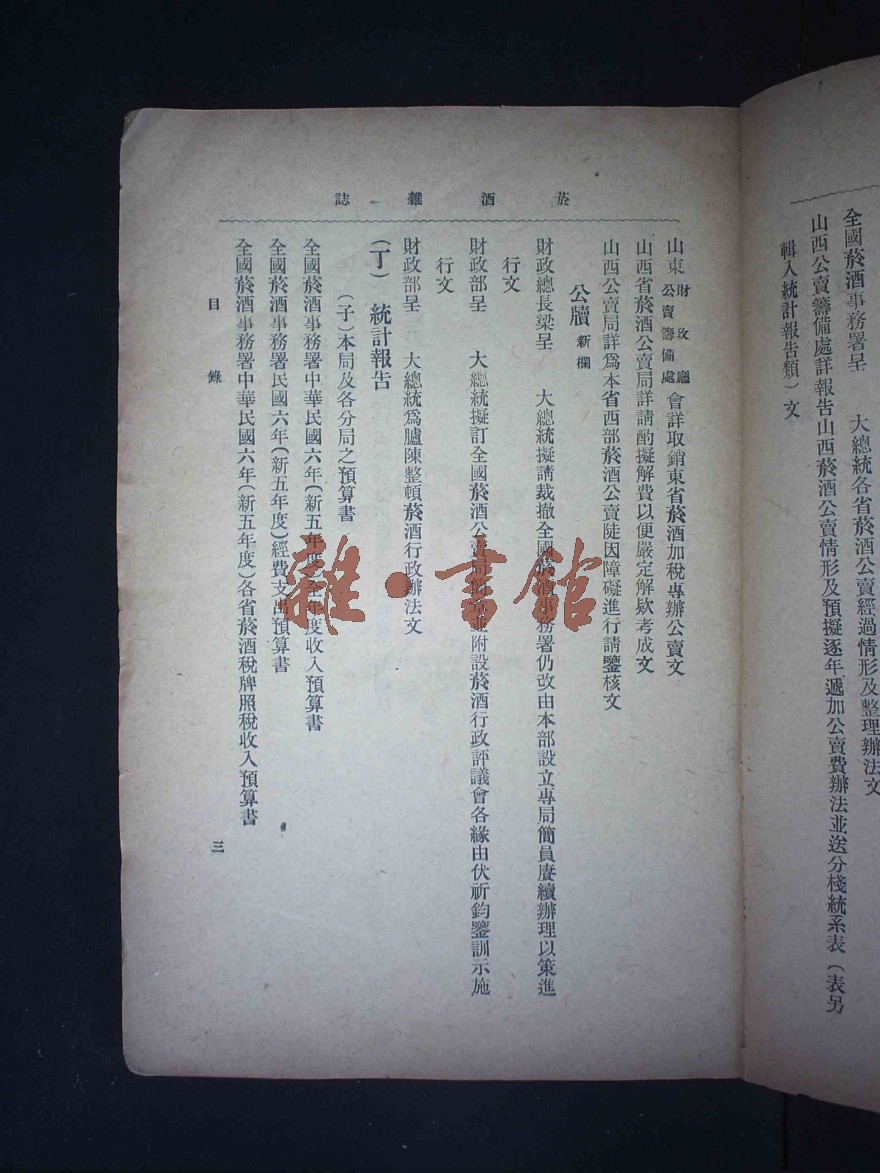 全國菸酒事務署呈　大總統各省菸酒公賣經過情形及整理辦法文
山西公賣籌備處詳報告山西菸酒公賣情形及預擬逐年遞加公賣費辦法並送分棧統系表（表另
輯入統計報告類）文
菸酒雜誌
山東財政廳公賣籌備處會詳取銷東省菸酒加稅專辦公賣文
山西省菸酒公賣局詳請酌擬解費以便嚴定解欵考成文
山西公賣局詳爲本省西部菸酒公賣陡因障礙進行請鑒核文
公牘新欄
財政總長梁呈　大總統擬請裁撤全國菸酒事務署仍改由本部設立專局簡員賡續辦理以策進
行文
財政部呈　大總統擬訂全國菸酒公賣局並附設菸酒行政評議會各緣由伏祈鈞鑒訓示施
行文
財政部呈　大總統爲臚陳整頓菸酒行政辦法文
（丁）統計報告
（子）本局及各分局之預算書
全國菸酒事務署中華民國六年（新五年度）全年度收入預算書
全國菸酒事務署民國六年（新五年度）經費支出預算書
全國菸酒事務署中華民國六年（新五年度）各省菸酒稅牌照稅收入預算書
目錄
三
雜·書館